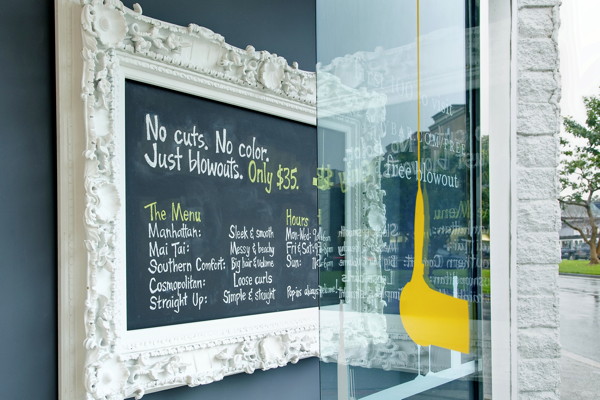 No cuts. No color.
Just blowouts. Only $35.
The Menu
Manhattan: Sleek & smooth
Mai Tai: Messy & beachy
Southern Comfort: Big hair & volume
Cosmopolitan: Loose curls
Straight Up: Simple & straight
Hours
Mon-Wed:
Fri & Sat:
Sun:
Pop ins always
free blowout